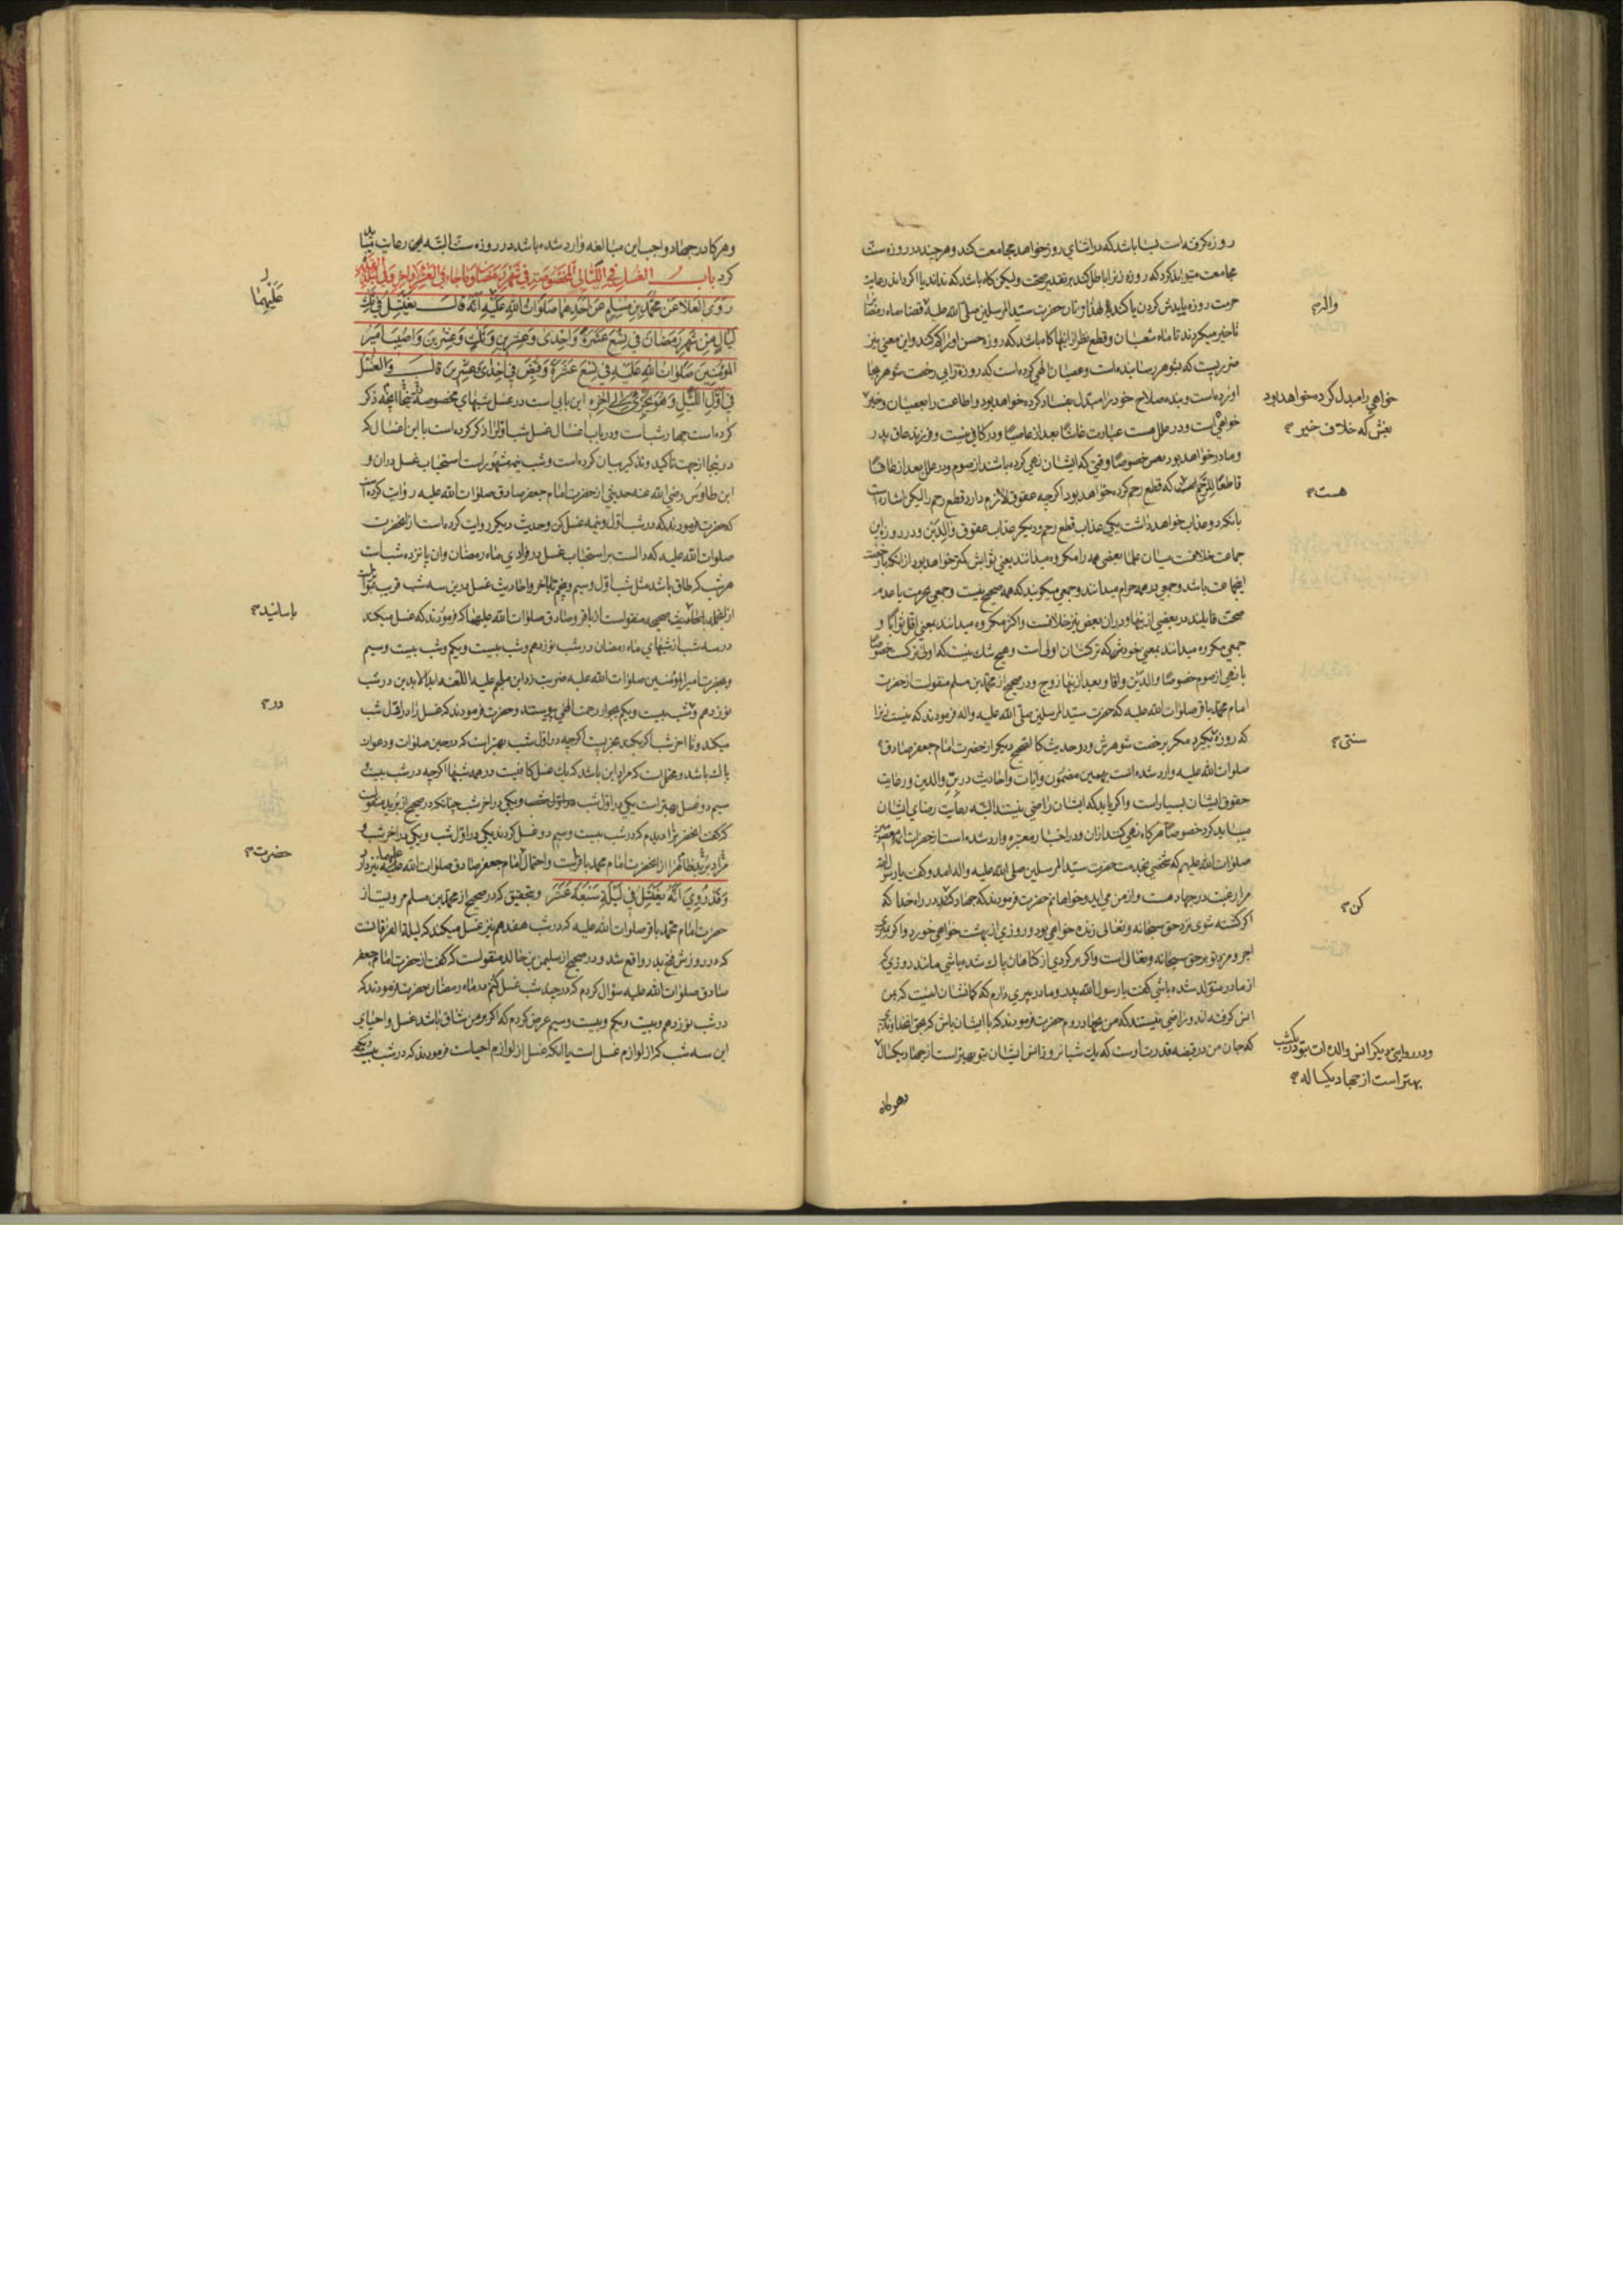 روزه گرفته است بسا باشد که در اثنای روز خواهد مجامعت کند و هر چند در روزه سنت
مجامعت میتواند کرد که روزه زنرا باطل کند بر تقدیر صحت ولیکن گاه باشد که نداند یا اگر داند رعایت
حرمت روزه یا بدش کردن یا کند و لهذا زنان حضرت سید المرسلین صلی الله علیه قضاء ماه رمضان
تاخیر میکردند تا ماه شعبان و قطع نظر از اینها گاه باشد که روزه حسن او را کم کند و این معنی نیز
ضرریست که بشوهر رسانیده است و عصیان الهی کرده است که روزه را بی رخصت شوهر بجا
آورده است و بنده صلاح خود را مبدل بفساد کرده خواهد بود و اطاعت را بعصیان و خیر
خواهی است و در علل هست عبارت غاشا بعد از عاصیا و در کافی نیست و فرزند عاق پدر
و مادر خواهد بود خصوصا وقتی که ایشان نهی کرده باشند از صوم و در علل بعد از عاقا
قاطعا للرحم است که قطع رحم کرده خواهد بود اگر چه عقوق لازم دارد قطع رحم را لیکن اشاره است
بآنکه دو عذاب خواهد داشت یکی عذاب قطع رحم و دیگر عذاب عقوق والدین و در روزه این
جماعت خلافست میان علما بعضی همه را مکروه میدانند یعنی ثوابش کمتر خواهد بود از آنکه با رخصت
اینجماعت باشد و جمعی در همه حرام میدانند و جمعی میگویند که همه صحیح نیست و جمعی بحرمت یا عدم
صحت قایلند در بعضی از اینها و در ان بعض نیز خلافست و اکثر مکروه میدانند بمعنی اقل ثوابا و
جمعی مکروه میدانند بمعنی خودش که ترکشان اولی است و هیچ شک نیست که اولی ترکست خصوصا
با نهی از صوم خصوصا والدین و اقا و بعد از اینها زوج و در صحیح از محمد بن مسلم منقولست از حضرت
امام محمد باقر صلوات الله علیه که حضرت سید المرسلین صلی الله علیه و اله فرمودند که نیست زنرا
که روزه بگیرد مگر برخصت شوهرش و در حدیث کالصحیح دیگر از حضرت امام جعفر صادق
صلوات الله علیه وارد شده است بهمین مضمون و ایات و احادیث در بر والدین و رعایت
حقوق ایشان بسیار است و اگر یابد که ایشان راضی نیستند البته رعایت رضای ایشان
میباید کرد خصوصا هر گاه نهی کنند ازان و در اخبار معتبره وارد شده است از حضرات ائمه معصومین
صلوات الله علیهم که شخصی بخدمت حضرت سید المرسلین صلی الله علیه و اله امد و گفت یا رسول الله
مرا رغبت در جهاد هست و از من می اید و خواهانم حضرت فرمودند که جهاد کن در راه خدا که
اگر کشته شوی نزد حق سبحانه و تعالی زنده خواهی بود و روزی از بهشت خواهی خورد و اگر بمیری
اجر و مزد تو بر حق سبحانه و تعالی است و اگر برگردی از گناهان پاک شده باشی مانند روزی که
از مادر متولد شده باشی گفت یا رسول الله پدر و مادر پیری دارم که گمانشان اینست که بمن
انس گرفته اند و راضی نیستند که من بجهاد روم حضرت فرمودند که با ایشان باش که بحق خداوندی
که جان من در قبضه قدرت اوست که یک شبانروز انس ایشان بتو بهتر است از جهاد یکسال
وهر گاه
واله
خواهی را مبدل کرده خواهد بود
بغش که خلاف خیر
هست
سنتی
کن
و در روایتی دیگر انس والده ات بتو در یکشب
بهتر است از جهاد یکساله
و هر گاه در جهاد واجب این مبالغه وارد شده باشد در روزه سنت البته این رعایت میباید
کرد باب الغسل فی اللیالی المخصوصة فی شهر رمضان و ما جاء فی العشر الاواخر و فی لیلة القدر
روی العلا عن محمد بن مسلم عن احدهما صلوات الله علیه انه قال یغتسل فی ثلث
لیال من شهر رمضان فی تسع عشرة و احدی و عشرین و ثلث و عشرین و اصیب امیر
المؤمنین صلوات الله علیه فی تسع عشرة و قبض فی احدی و عشرین قال و الغسل
فی اول اللیل و هو یجزی الی اخره این بابی است در غسل شبهای مخصوصه و انچه ذکر
کرده است چهار شب است و در باب اغسال غسل شب اول را ذکر کرده است با این اغسال که
در اینجا از جهت تاکید و تذکیر بیان کرده است و شب نیمه مشهور است استحباب غسل دران و
ابن طاوس رضی الله عنه حدیثی از حضرت امام جعفر صادق صلوات الله علیه روایت کرده است
که حضرت فرمودند که در شب اول و نیمه غسل کن و حدیث دیگر روایت کرده است از انحضرت
صلوات الله علیه که دالست بر استحباب غسل در فرادی ماه رمضان و ان پانزده شب است
هر شب که طاق باشد مثل شب اول و سیم و پنجم تا باخر و احادیث غسل درین سه شب قریب بتواتر است
از انجمله باحادیث صحیحه منقولست از باقر و صادق صلوات الله علیهما که فرمودند که غسل میکند
در سه شب از شبهای ماه رمضان در شب نوزدهم و شب بیست و یکم و شب بیست و سیم
و بحضرت امیر المؤمنین صلوات الله علیه ضربت زد ابن ملجم علیه اللعنه ابد الابدین در شب
نوزدهم و شب بیست و یکم بجوار رحمت الهی پیوستند و حضرت فرمودند که غسل را در اول شب
میکند و تا اخر شب اگر بکند مجزیست اگر چه در اول شب بهتر است که در حین صلوات و دعوات
پاک باشد و محتمل است که مراد این باشد که یک غسل کافیست در همه شبها اگر چه در شب بیست و
سیم دو غسل بهتر است یکی در اول شب و یکی در اخر شب چنانکه در صحیح از برید منقولست
که گفت انحضرت را دیدم که در شب بیست و سیم دو غسل کردند یکی در اول شب و یکی در اخر شب و
مراد برید ظاهرا از انحضرت امام محمد باقر است و احتمال امام جعفر صادق صلوات الله علیهما نیز دارد
و قد روی انه یغتسل فی لیلة سبعة عشر و بتحقیق که در صحیح از محمد بن مسلم مرویست از
حضرت امام محمد باقر صلوات الله علیه که در شب هفدهم نیز غسل میکند که لیلة الفرقانست
که در روزش فتح بدر واقع شد و در صحیح از سلیمن بن خالد منقولست که گفت از حضرت امام جعفر
صادق صلوات الله علیه سؤال کردم که در چند شب غسل کنم در ماه رمضان حضرت فرمودند که
در شب نوزدهم و بیست و یکم و بیست و سیم عرض کردم که اگر بر من شاق باشد غسل و احیای
این سه شب که از لوازم غسل است یا انکه غسل از لوازم احیاست فرمودند که در شب بیست و یکم
علیهما
باسانید
در
حضرت